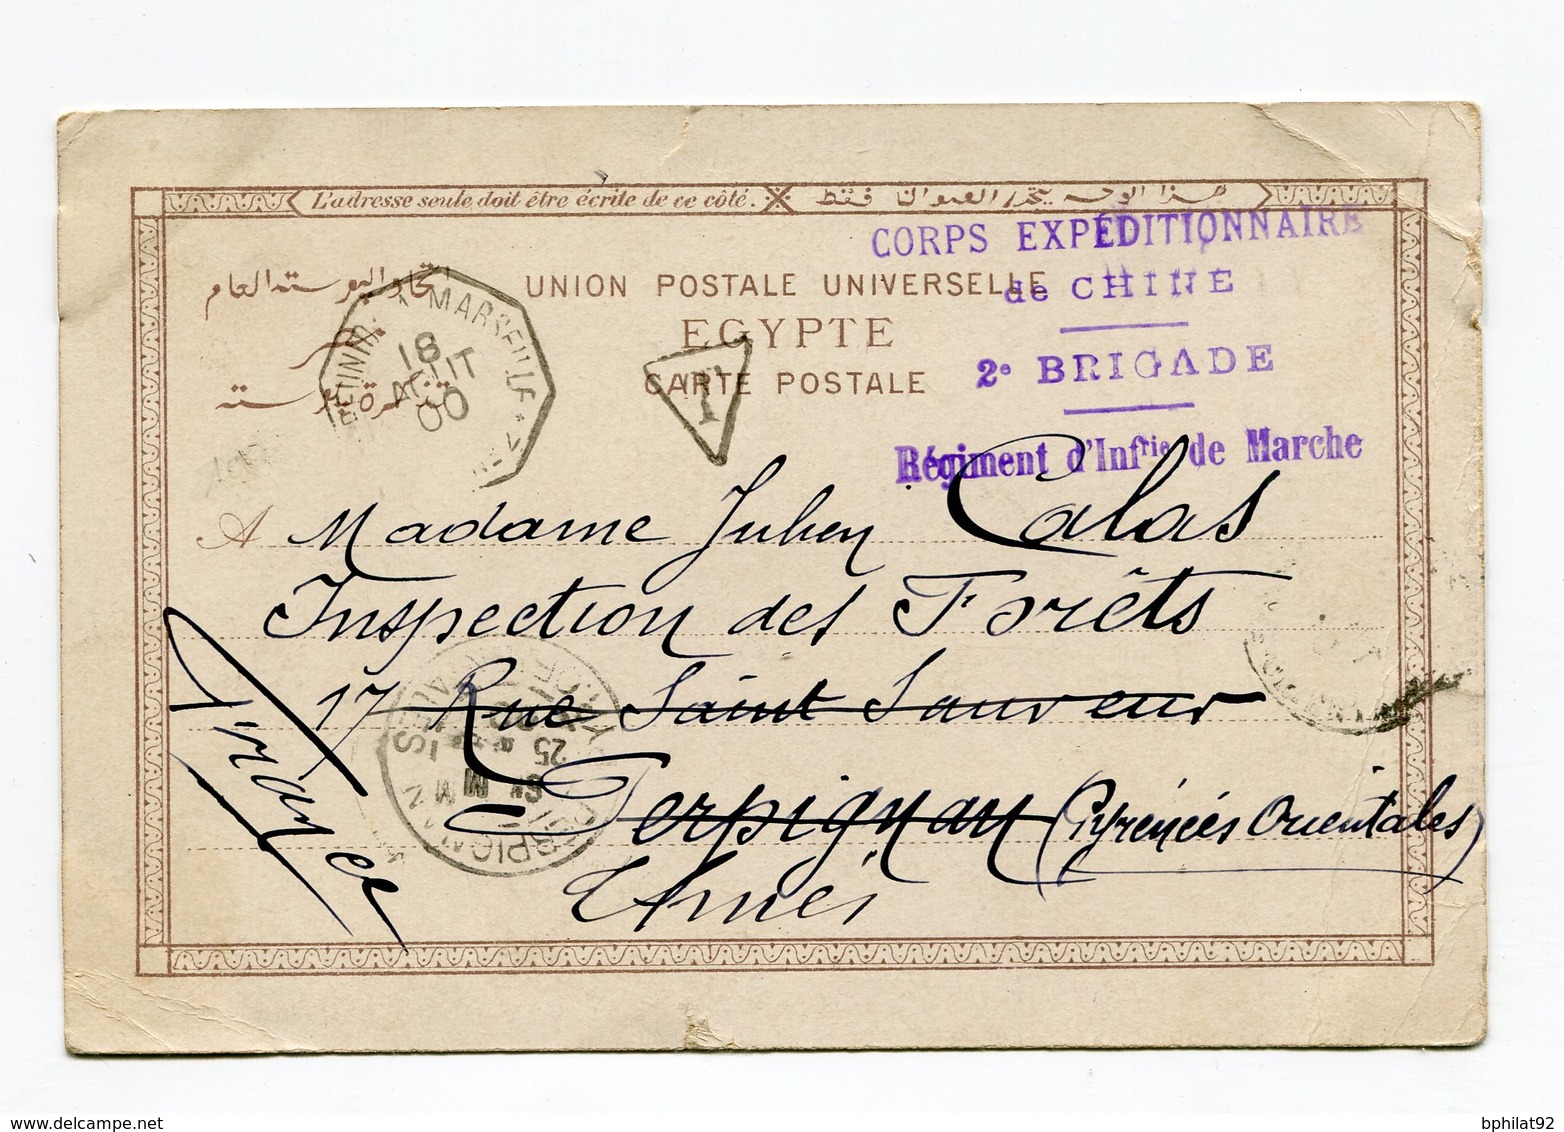 L'adresse seule doit être écrite de ce côté. هذا الوجه يحرر العنوان فقط
CORPS EXPÉDITIONNAIRE
de CHINE
2e BRIGADE
Régiment d'Infrie de Marche
اتحاد البوسته العام
UNION POSTALE UNIVERSELLE
مصر
EGYPTE
تذكرة بوسته
CARTE POSTALE
MARSEILLE
18
AOUT
00
T
A Madame Julien Calas
Inspection des Forêts
17 Rue Saint Sauveur
Perpignan (Pyrénées Orientales)
France
25
PERPIGNAN
bphilat92